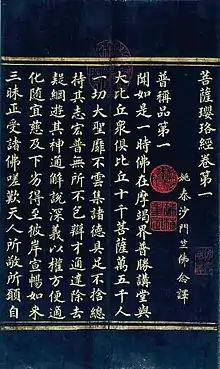 菩薩瓔珞經卷第一
姚秦沙門竺佛念譯
普稱品第一
聞如是一時佛在摩竭界普勝講堂與
大比丘眾俱比丘十千菩薩萬五千人
一切大聖靡不雲集諸德具足不捨總
持其志宏普無所不包辯才通達除去
疑網遊其神通解說深義以權方便適
化隨宜慈及下劣得至彼岸宣暢如來
三昧正受諸佛嗟歎天人所敬所願自